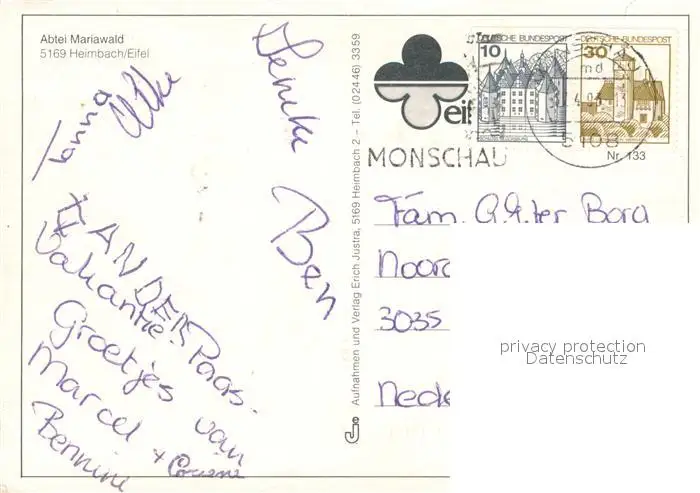 Abtei Mariawald
5169 Heimbach/Eifel
Tanna
Ben
XANDER
Vakantie-Paas-
Groetjes van
Marcel +
Bennine
Aufnahmen und Verlag Erich Justra, 5169 Heimbach 2 – Tel. (02446) 3359
eif
MONSCHAU
DEUTSCHE BUNDESPOST
10
DEUTSCHE BUNDESPOST
30
md
5108
Nr. 133
Fam. ter Bora
Noord
3035
Nede
privacy protection
Datenschutz